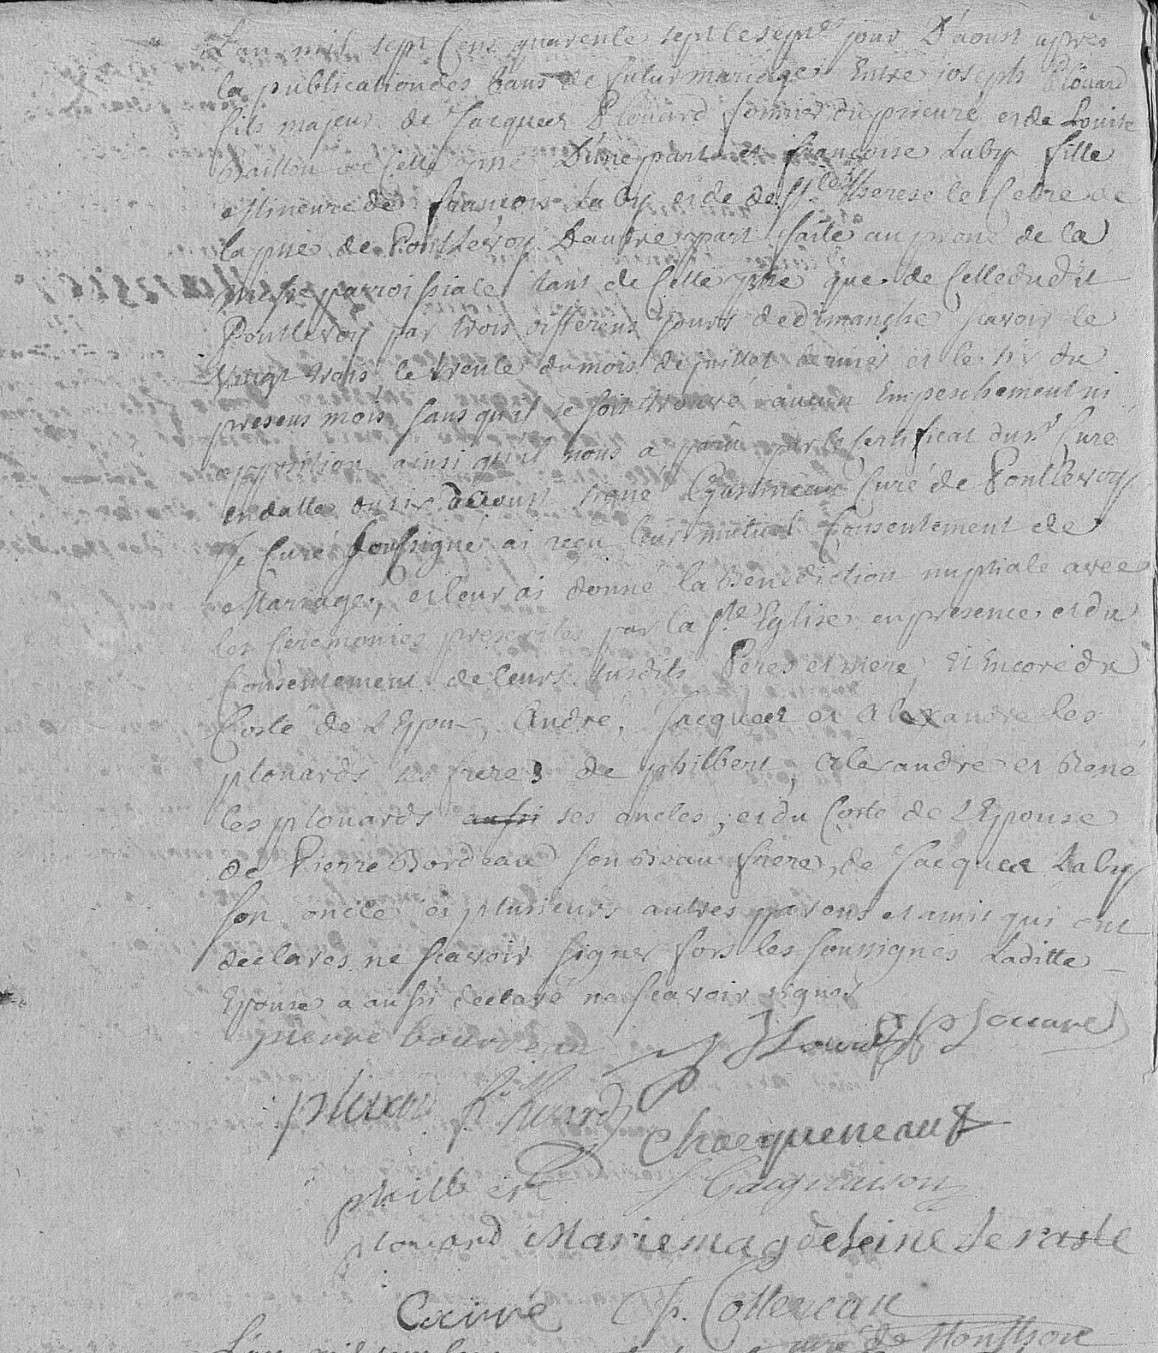 L'an mil sept Cens quarente sept le sept jour D'aoust après
la publication des bans de futur mariage Entre joseph Plouard
fils majeur de Jacques Plouard fermier du prieuré et de Louise
de Cette psse D'une part et françoise Laby fille
Mineure de françois Laby et de Therese le
la psse de Pontlevoy D'autre part faite au prone de la
messe parroissiale tant de Cette psse que de Celle dudit
Pontlevoy par trois differens jours de dimanche savoir le
vingt trois le trente du mois de juillet dernier et le six du
presens mois sans qu'il se soit trouvé aucun Empeschement ni
opposition ainsi qu'il nous a paru par le Certificat du sr Curé
en datte du six D'aoust signé Curé de Pontlevoy
Je Curé soussigné ai reçu leur mutuel Consentement de
Mariage, et leur ai donné la benediction nuptiale avec
les Ceremonies prescrites par la ste Eglise en presence et du
Consentement de leurs susdits Peres et mere, Et Encore du
Costé de L'Epoux, André, Jacques et Alexandre les
plouards ses freres de philbert, Alexandre et René
les plouards aussi ses oncles, et du Costé de L'Epouse
de Pierre Bordeau son beau frere, de Jacques Laby
son oncle et plusieurs autres parens et amis qui ont
declarés ne scavoir signer fors les soussignés Laditte
Epouse a aussi declaré ne scavoir signer
pierre bourdeau Plouard plouard
Chacqueneau
J Gaignaison
plouard Marie magdeleine
P. Cottereau
curé de Monthou